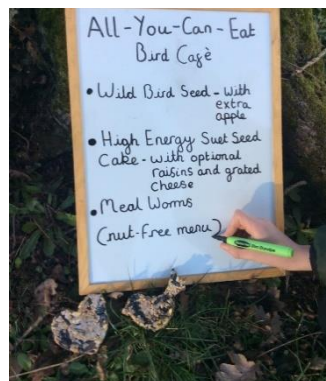 All-You-Can-Eat
Bird Cafè
• Wild Bird Seed - With
extra
apple
• High Energy Suet Seed
Cake - with optional
raisins and grated
cheese
• Meal Worms
(nut-free menu)